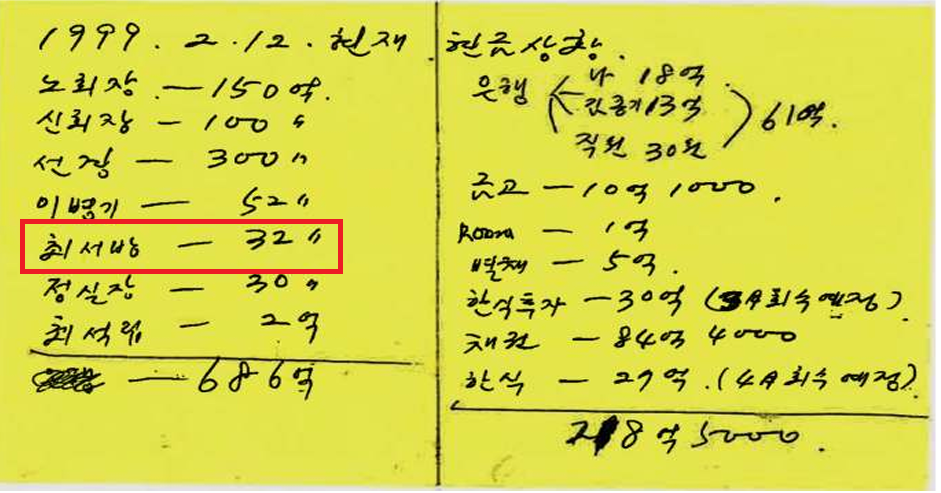 1999. 2. 12. 현재
노회장 — 150억.
신회장 — 100 〃
선경 — 300 〃
이병기 — 52 〃
최서방 — 32 〃
정실장 — 30 〃
최석림 — 2억
— 686억
현금상황.
은행 나 18억.
13억
직원 30원
61억.
금고 — 10억 1000.
Room — 1억
별채 — 5억.
한식투자 — 30억 (3月회수예정).
채권 — 84억 4000
한식 — 27억. (4月회수예정).
218억 5000.